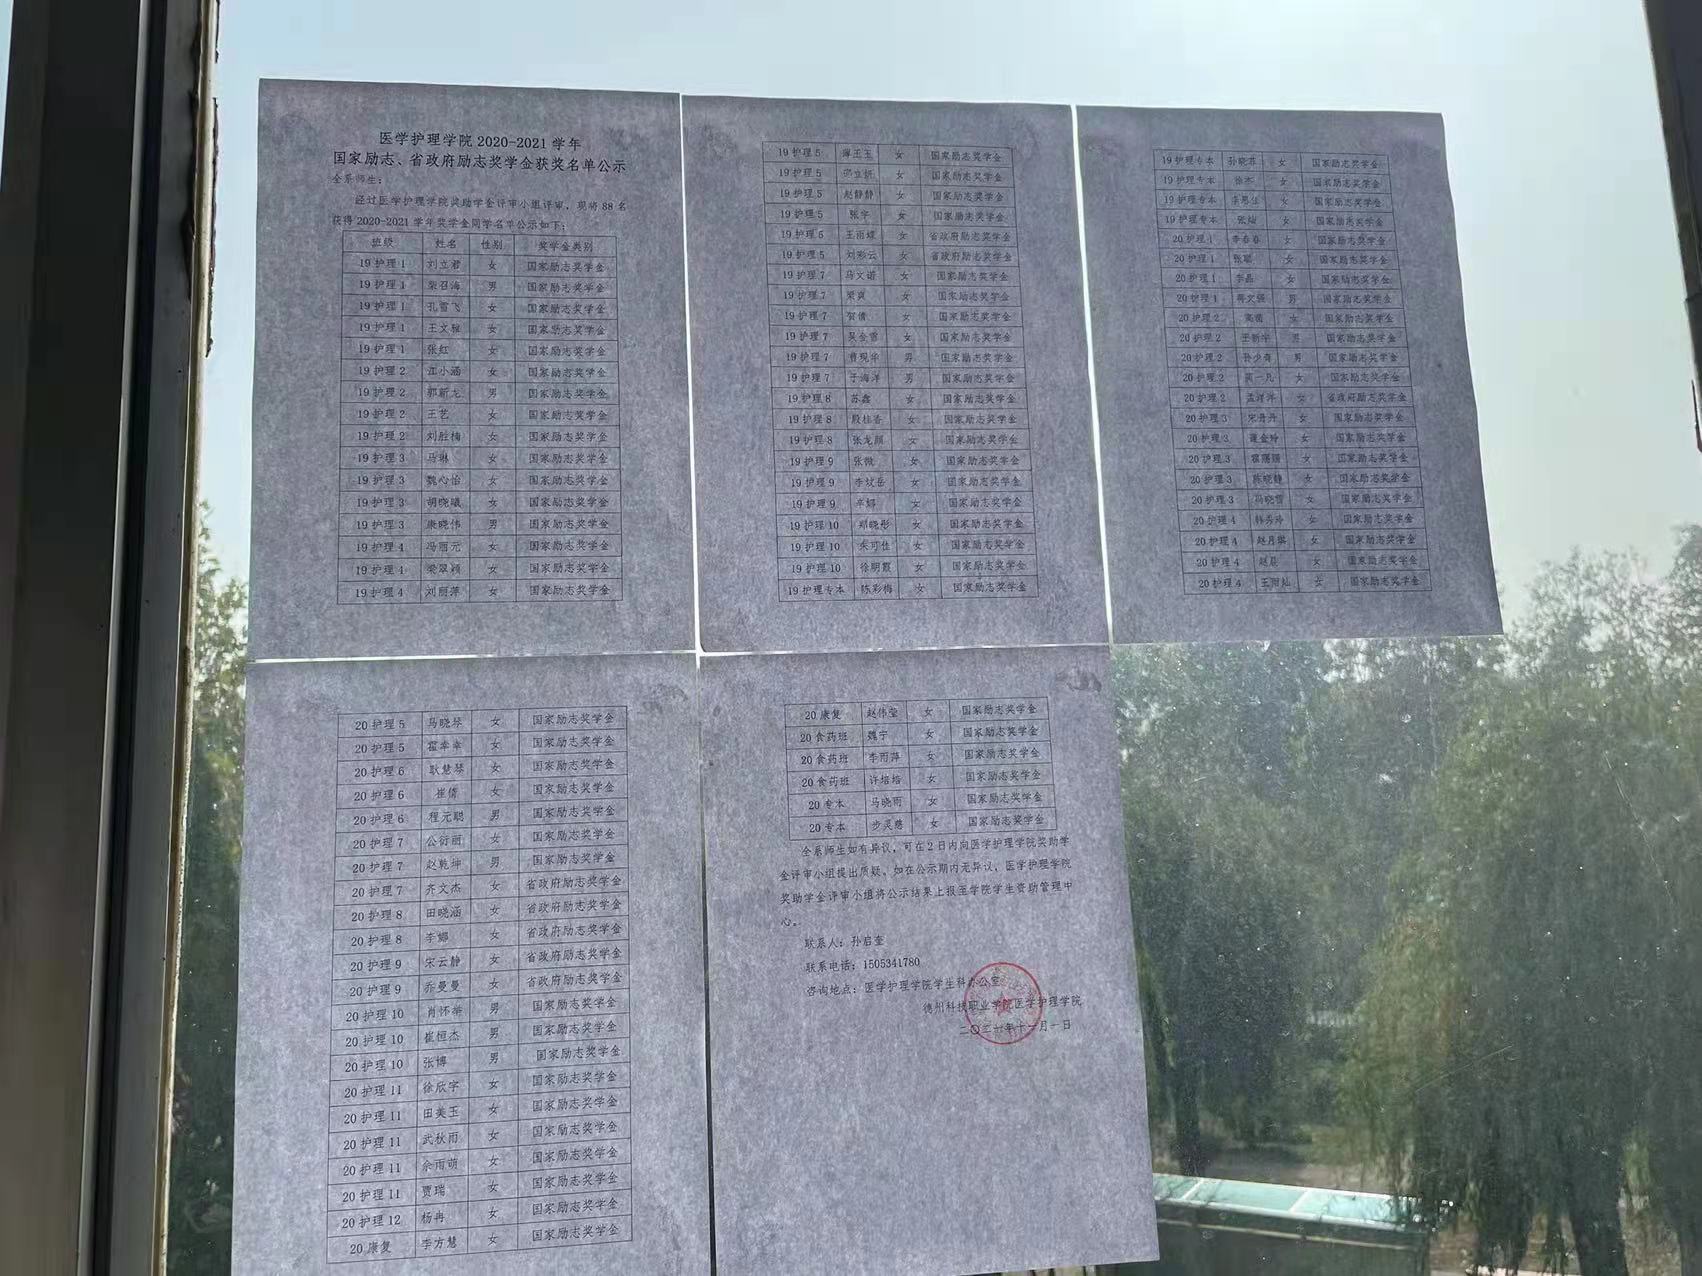 医学护理学院 2020-2021 学年
国家励志、省政府励志奖学金获奖名单公示
全系师生：
经过医学护理学院奖助学金评审小组评审，现将 88 名
获得 2020-2021 学年奖学金同学名单公示如下：
班级 姓名 性别 奖学金类别
19 护理 1 刘立君 女 国家励志奖学金
19 护理 1 荣召海 男 国家励志奖学金
19 护理 1 孔雪飞 女 国家励志奖学金
19 护理 1 王文雅 女 国家励志奖学金
19 护理 1 张红 女 国家励志奖学金
19 护理 2 江小涵 女 国家励志奖学金
19 护理 2 郭新龙 男 国家励志奖学金
19 护理 2 王艺 女 国家励志奖学金
19 护理 2 刘胜楠 女 国家励志奖学金
19 护理 3 马琳 女 国家励志奖学金
19 护理 3 魏心怡 女 国家励志奖学金
19 护理 3 胡晓曦 女 国家励志奖学金
19 护理 3 康晓伟 男 国家励志奖学金
19 护理 4 冯丽元 女 国家励志奖学金
19 护理 4 梁翠颖 女 国家励志奖学金
19 护理 4 刘丽萍 女 国家励志奖学金
19 护理 5 薄王玉 女 国家励志奖学金
19 护理 5 邵立妍 女 国家励志奖学金
19 护理 5 赵静静 女 国家励志奖学金
19 护理 5 张宇 女 国家励志奖学金
19 护理 5 王雨蝶 女 省政府励志奖学金
19 护理 5 刘彩云 女 省政府励志奖学金
19 护理 7 马文诺 女 国家励志奖学金
19 护理 7 荣爽 女 国家励志奖学金
19 护理 7 贺倩 女 国家励志奖学金
19 护理 7 吴金雪 女 国家励志奖学金
19 护理 7 曹现华 男 国家励志奖学金
19 护理 7 于海洋 男 国家励志奖学金
19 护理 8 苏鑫 女 国家励志奖学金
19 护理 8 殷桂香 女 国家励志奖学金
19 护理 8 张龙颜 女 国家励志奖学金
19 护理 9 张微 女 国家励志奖学金
19 护理 9 李坟岳 女 国家励志奖学金
19 护理 9 辛娜 女 国家励志奖学金
19 护理 10 郑晓彤 女 国家励志奖学金
19 护理 10 朱可佳 女 国家励志奖学金
19 护理 10 徐明霞 女 国家励志奖学金
19 护理专本 陈彩梅 女 国家励志奖学金
19 护理专本 孙晓菲 女 国家励志奖学金
19 护理专本 徐杰 女 国家励志奖学金
19 护理专本 李思佳 女 国家励志奖学金
19 护理专本 张灿 女 国家励志奖学金
20 护理 1 李春春 女 国家励志奖学金
20 护理 1 张聪 女 国家励志奖学金
20 护理 1 李晶 女 国家励志奖学金
20 护理 1 蒋文强 男 国家励志奖学金
20 护理 2 高蕾 女 国家励志奖学金
20 护理 2 王新宇 男 国家励志奖学金
20 护理 2 孙少奇 男 国家励志奖学金
20 护理 2 一凡 女 国家励志奖学金
20 护理 2 孟洋洋 女 省政府励志奖学金
20 护理 3 宋丹丹 女 国家励志奖学金
20 护理 3 董金玲 女 国家励志奖学金
20 护理 3 霍珊珊 女 国家励志奖学金
20 护理 3 陈晓静 女 国家励志奖学金
20 护理 3 冯晓雪 女 国家励志奖学金
20 护理 4 韩秀玲 女 国家励志奖学金
20 护理 4 赵月琪 女 国家励志奖学金
20 护理 4 赵晨 女 国家励志奖学金
20 护理 4 王阳灿 女 国家励志奖学金
20 护理 5 马晓琴 女 国家励志奖学金
20 护理 5 霍幸幸 女 国家励志奖学金
20 护理 6 耿慧琴 女 国家励志奖学金
20 护理 6 崔倩 女 国家励志奖学金
20 护理 6 程元聪 男 国家励志奖学金
20 护理 7 公衍丽 女 国家励志奖学金
20 护理 7 赵乾坤 男 国家励志奖学金
20 护理 7 齐文杰 女 省政府励志奖学金
20 护理 8 田晓涵 女 省政府励志奖学金
20 护理 8 李娜 女 省政府励志奖学金
20 护理 9 宋云静 女 省政府励志奖学金
20 护理 9 乔曼曼 女 省政府励志奖学金
20 护理 10 肖怀举 男 国家励志奖学金
20 护理 10 崔恒杰 男 国家励志奖学金
20 护理 10 张博 男 国家励志奖学金
20 护理 11 徐欣宇 女 国家励志奖学金
20 护理 11 田美玉 女 国家励志奖学金
20 护理 11 武秋雨 女 国家励志奖学金
20 护理 11 佘雨萌 女 国家励志奖学金
20 护理 11 贾瑞 女 国家励志奖学金
20 护理 12 杨冉 女 国家励志奖学金
20 康复 李方慧 女 国家励志奖学金
20 康复 赵伟莹 女 国家励志奖学金
20 食药班 魏宁 女 国家励志奖学金
20 食药班 李雨萍 女 国家励志奖学金
20 食药班 许培培 女 国家励志奖学金
20 专本 马晓雨 女 国家励志奖学金
20 专本 步灵慈 女 国家励志奖学金
全系师生如有异议，可在 2 日内向医学护理学院奖助学
金评审小组提出质疑。如在公示期内无异议，医学护理学院
奖助学金评审小组将公示结果上报至学院学生资助管理中
心。
联系人：孙启奎
联系电话：1505341780
咨询地点：医学护理学院学生科办公室
德州科技职业学院医学护理学院
二〇二一年十一月一日